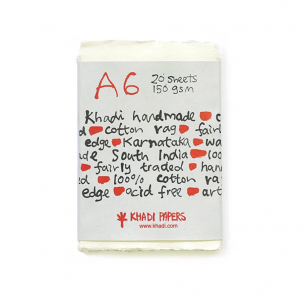 A6 20 sheets
150 gsm
Khadi handmade c
d cotton rag fairl
edge Karnataka wa
de South India 100
fairly traded han
100% cotton ra
edge acid free art
KHADI PAPERS
www.khadi.com